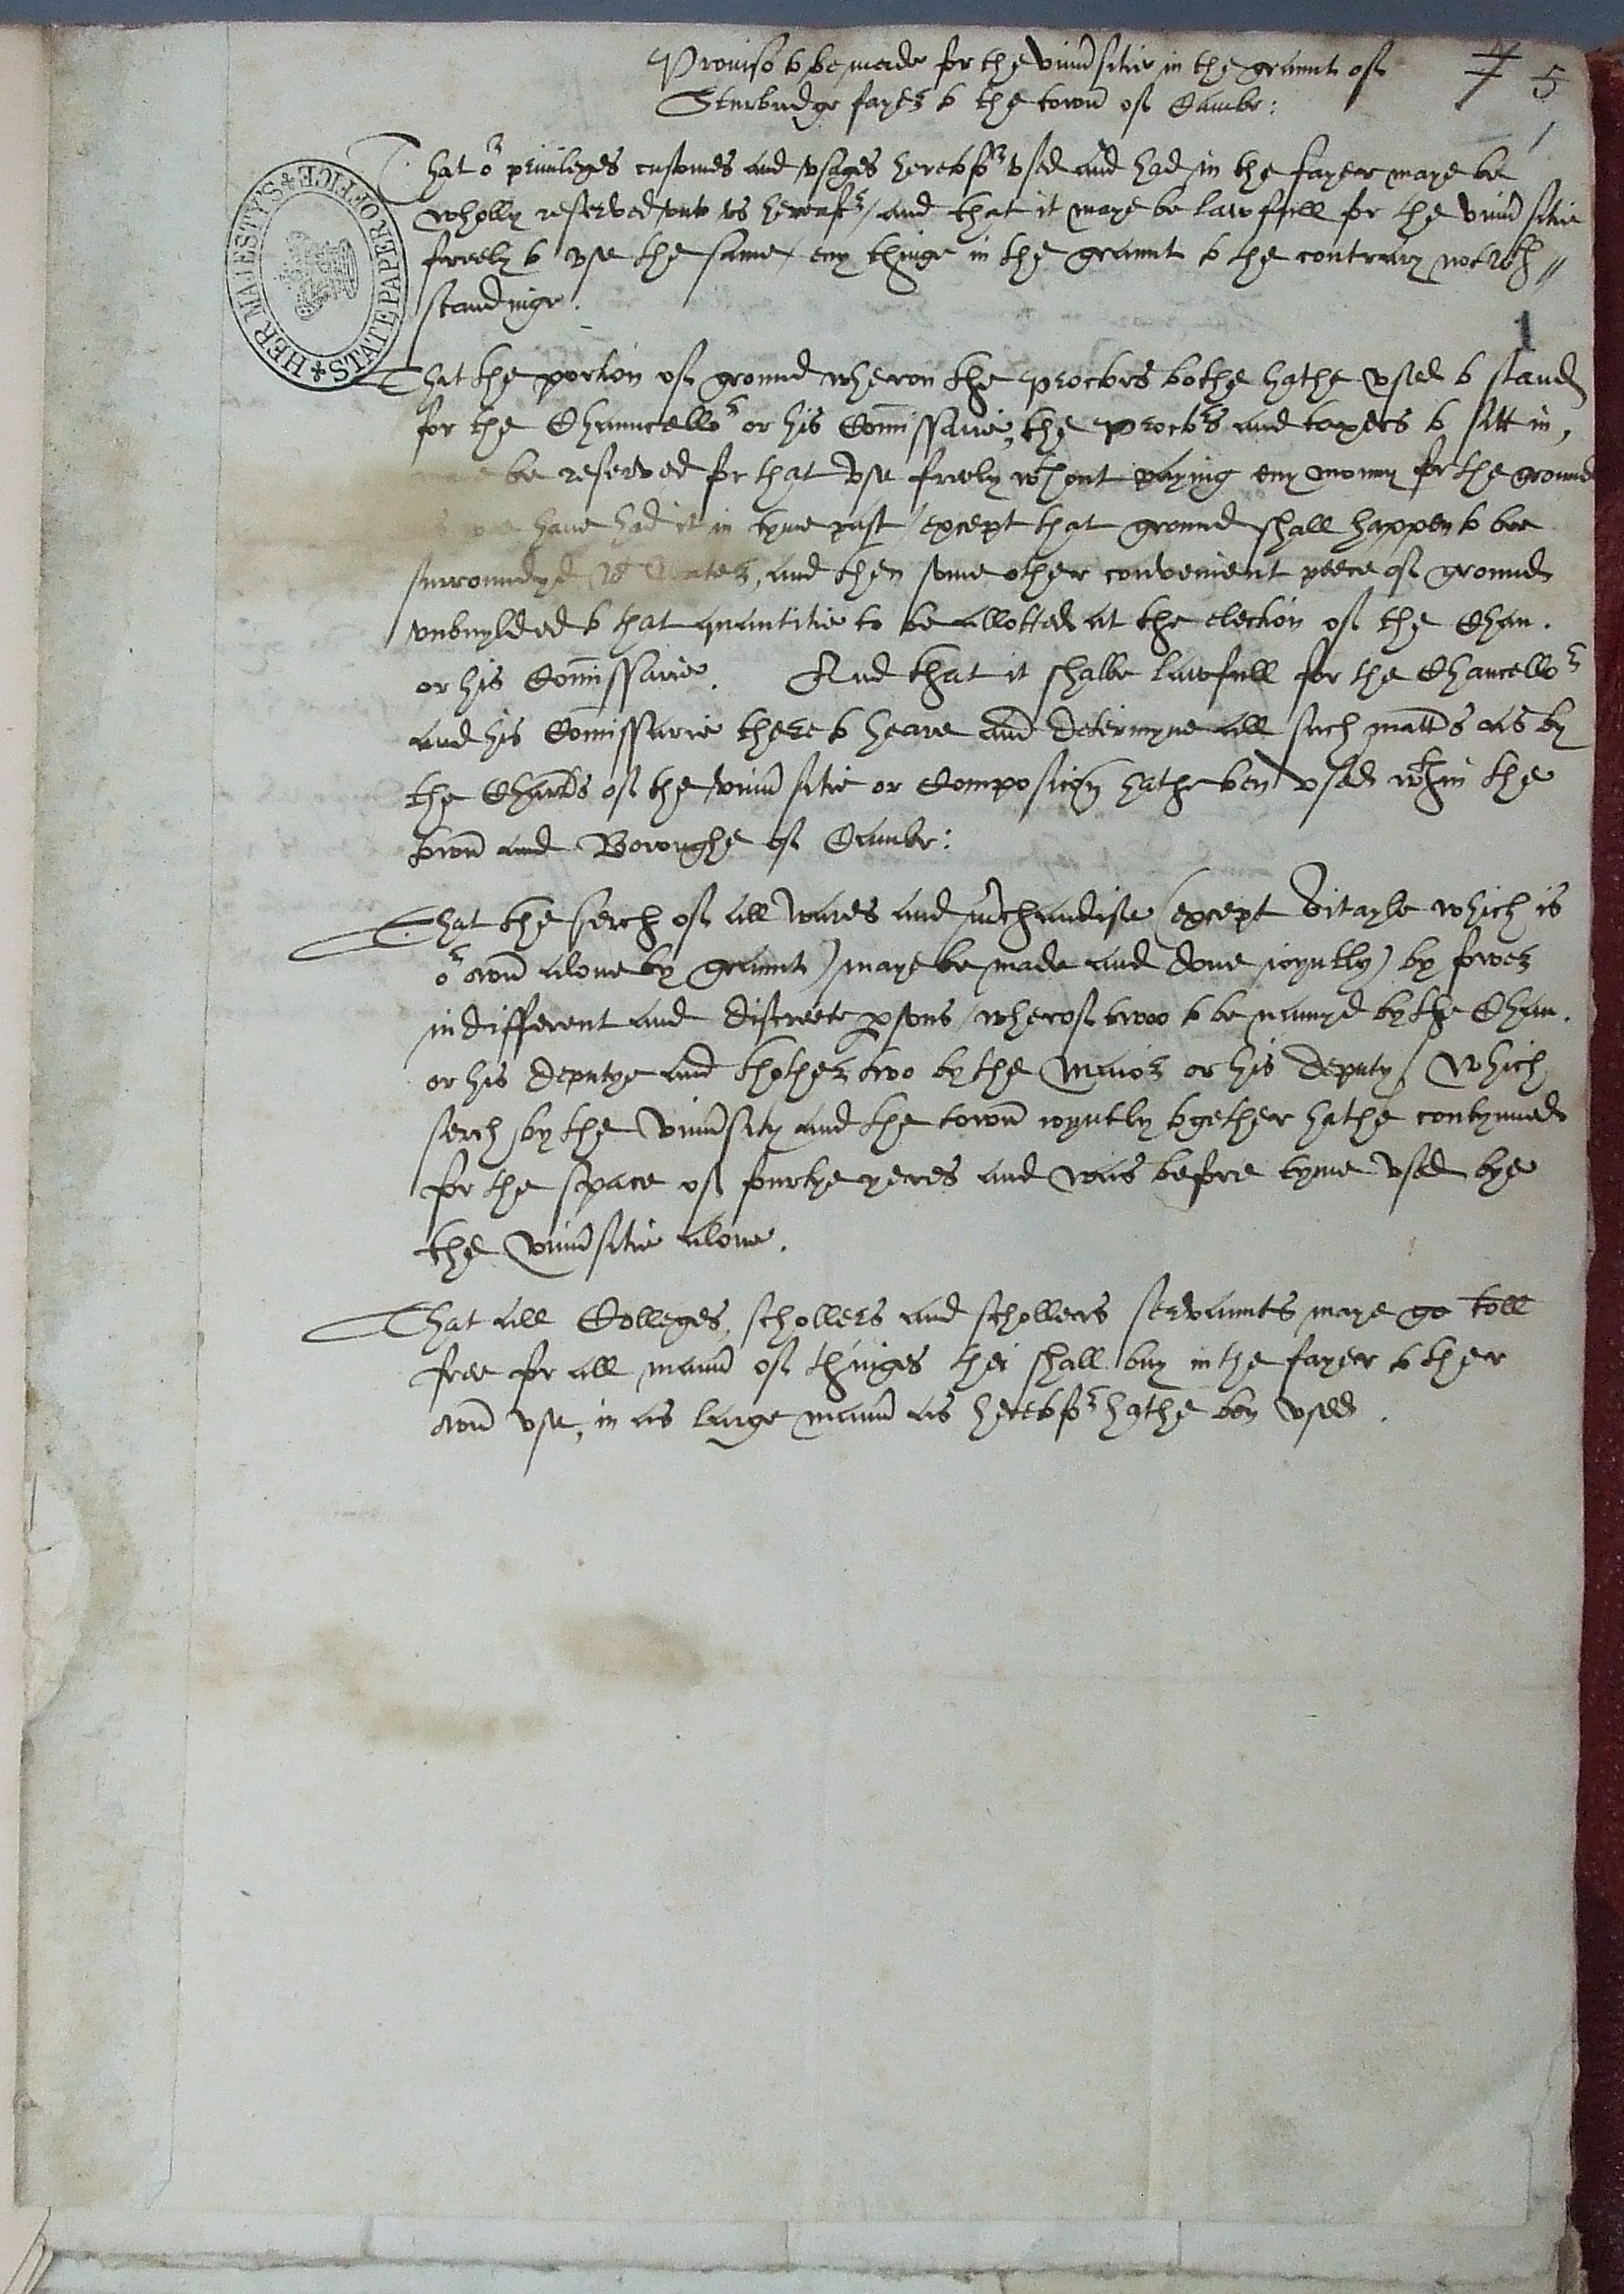 Prouiso to be made for the Vniu'sitie in the graunt of
Sturbridge fayer to the town of Cambr:
5
That or priuileges customes and vsages heretofor vsed and had in the fayer maye be
wholly reserved vnto vs hereaftr / and that it maye be lawffull for the vniu'sitie
freely to vse the same / eny thinge in the graunt to the contrary notwth//
standinge.
1
That the portion of ground wheron the proctors bothe hathe vsed to stand
for the Chauncellor or his Commissarie, the proctors and taxers to sitt in,
be reserved for that vse freely wthout paying eny monny for the ground
have had it in tyme past / except that ground shall happen to bee
surroundyd wt water, and then some other convenient peece of ground
vnbuylded to that quantitie to be allotted at the election of the Chan.
or his Commissarie. And that it shalbe lawfull for the Chancellor
and his Commissarie there to heare and determyne all such matters as by
the Charters of the vniu'sitie or Composicion hathe ben vsed wthin the
town and Boroughe of Cambr:
That the serch of all wares and m'chandise (except Vitayle which is
or own alone by graunt) maye be made and done ioyntly by fower
indifferent and discreete p'sons / wherof twoo to be namyd by the Chan.
or his deputye and thother two by the Maior or his deputy / Which
serch by the Vniu'sity and the town ioyntly together hathe contynued
for the space of fourtye yeres and was before tyme vsed bye
the vniu'sitie alone.
That all Colleges, schollers and schollers servaunts maye go toll
free for all mann' of thinges thei shall buy in the fayer to ther
own vse, in as large mann' as heretofor hathe ben vsed.
HER MAJESTY'S STATE PAPER OFFICE